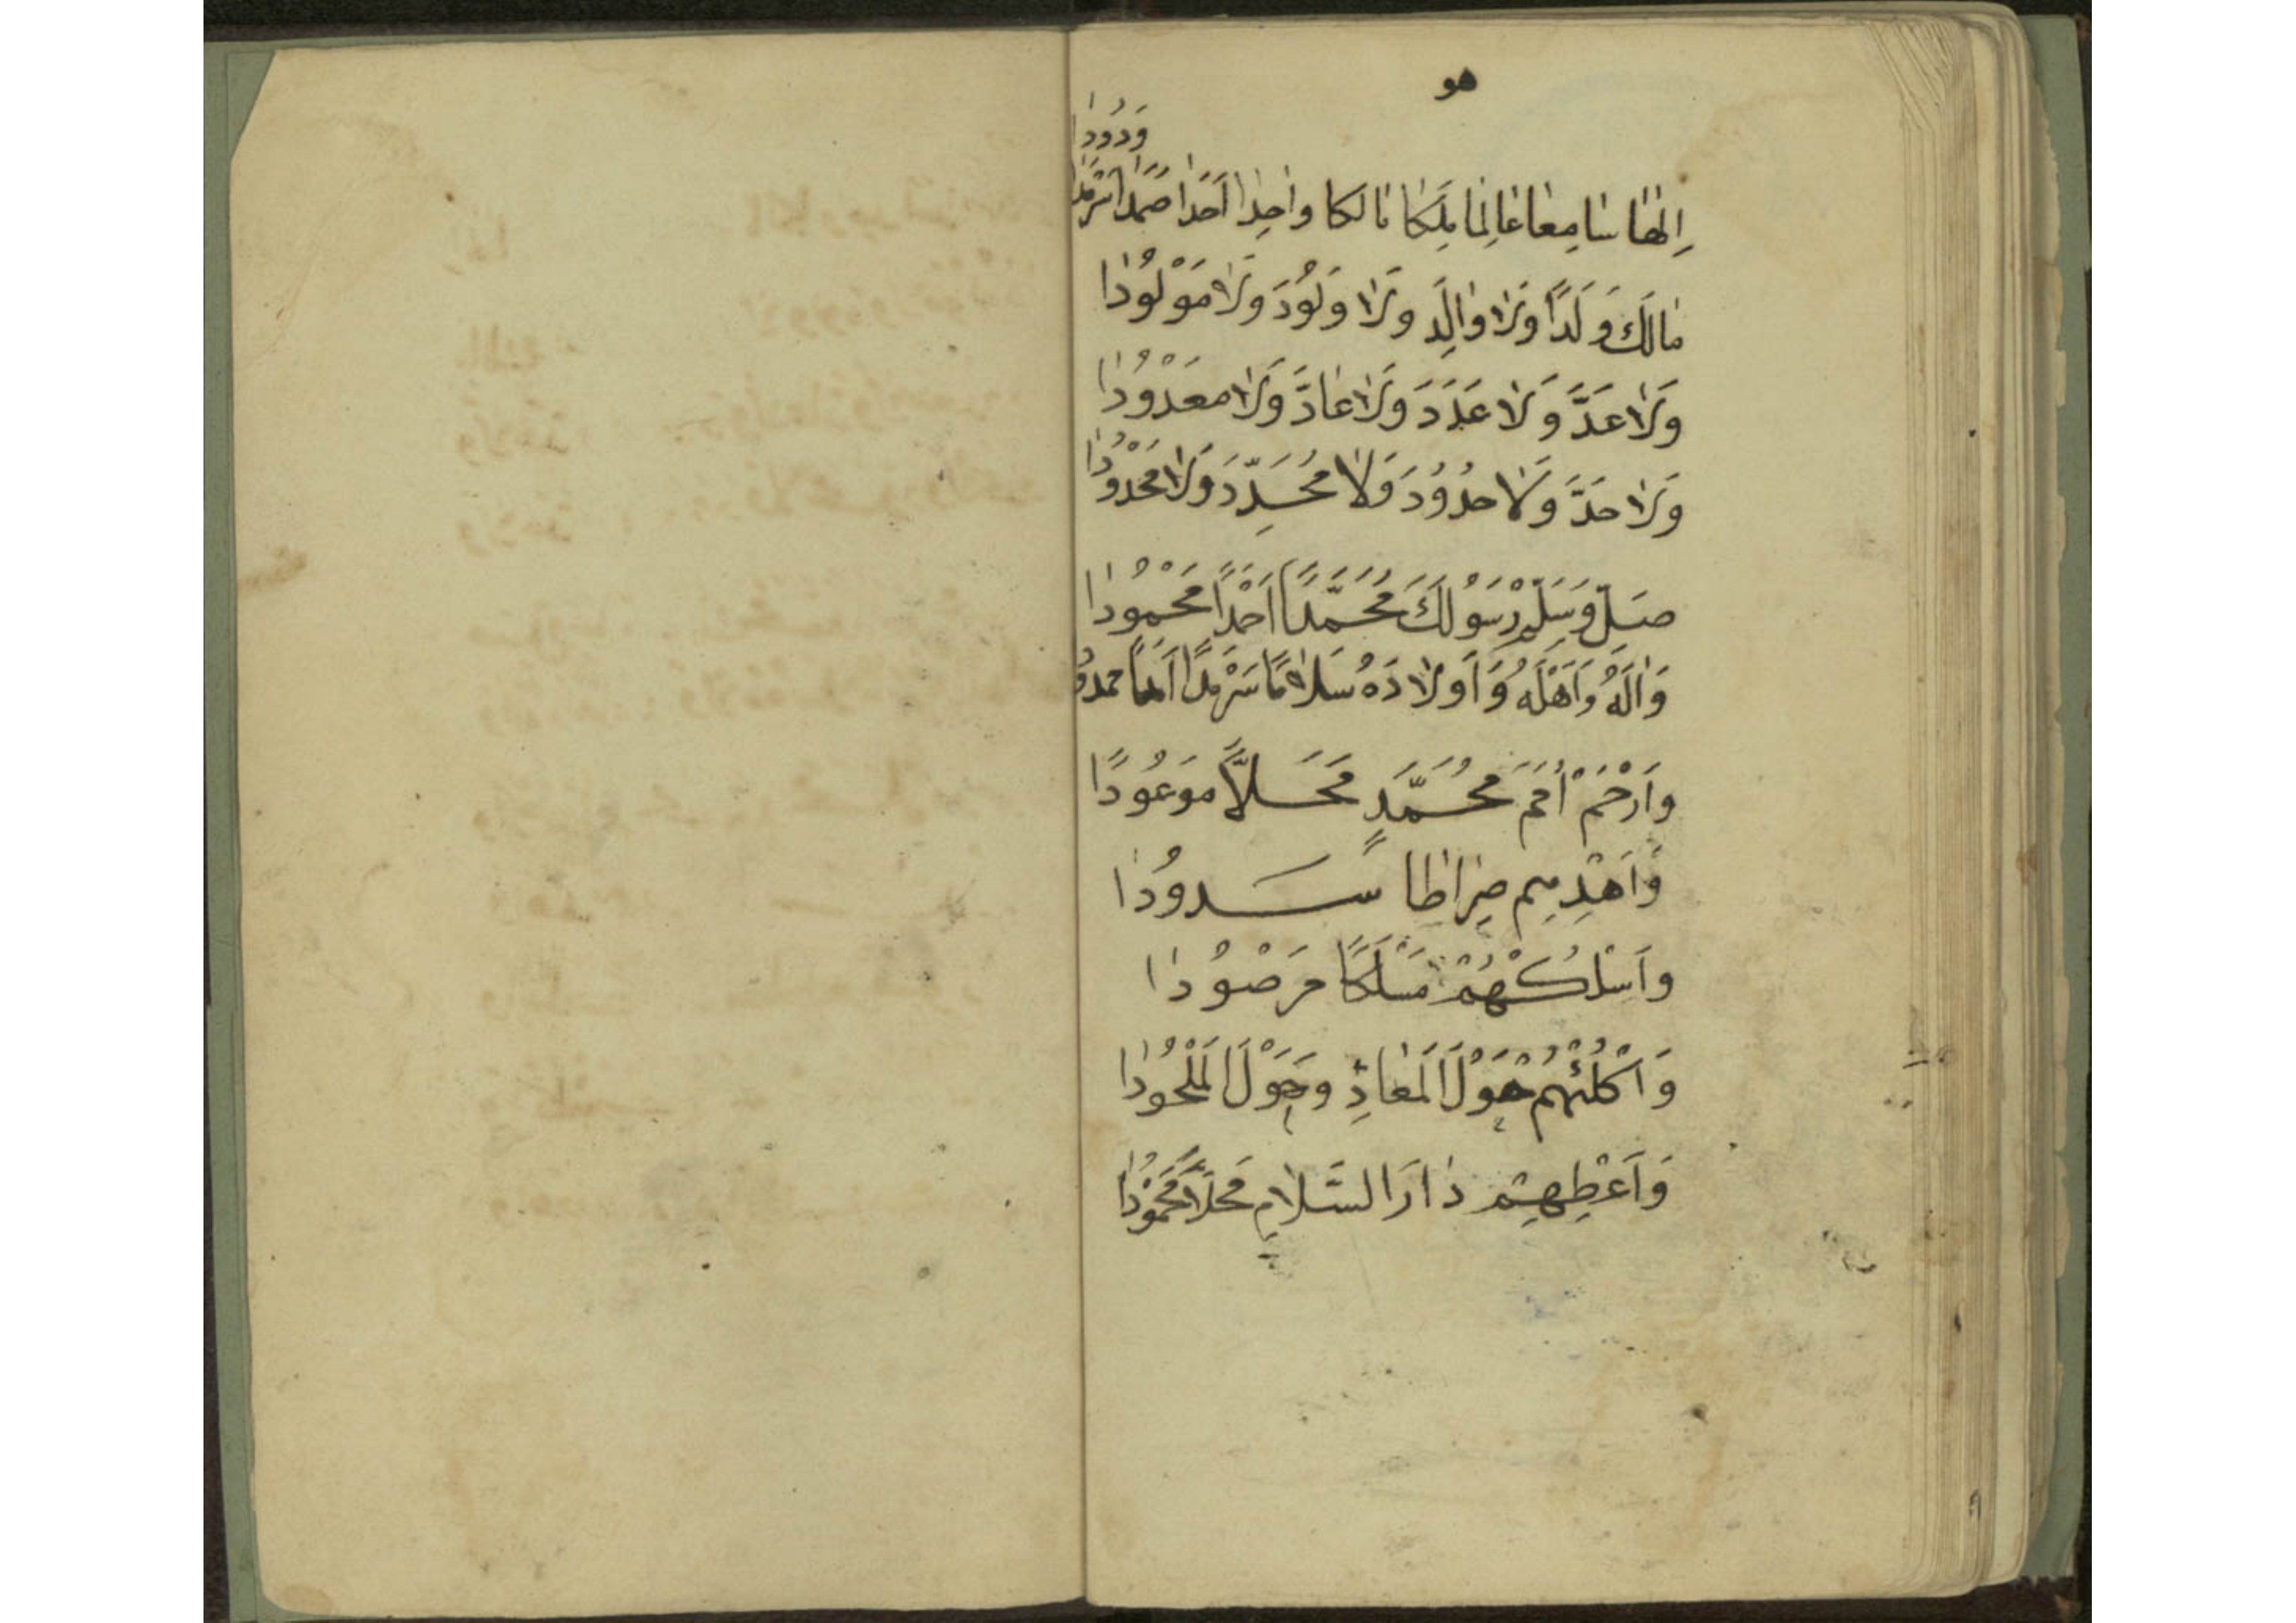 هو
وَدُودًا
اِلٰهًا سَامِعًا عَالِمًا مَلِكًا مَالِكًا وَاحِدًا اَحَدًا صَمَدًا سَرْمَدًا
مَالَكَ وَلَدًا وَلَا وَالِدَ وَلَا وَلُودَ وَلَا مَوْلُودًا
وَلَا عَدَّ وَلَا عَدَدَ وَلَا عَادَّ وَلَا مَعْدُودًا
وَلَا حَدَّ وَلَا حدُودَ وَلَا مُحَدِّدَ وَلَا مَحْدُودًا
صَلِّ وَسَلِّمْ رَسُولَكَ مُحَمَّدًا اَحْمَدًا مَحْمُودًا
وَاٰلَهُ وَاَهْلَهُ وَاَوْلَادَهُ سَلَامًا سَرْمَدًا
وَاَرْحَمْ اُمَمَ مُحَمَّدٍ مَحَلًّا مَوعُودًا
وَاَهْدِهِم صِرَاطًا سَدودًا
وَاَسْلُكْهُمْ مَسْلَكًا مَرْصُودًا
وَاَكْلُئْهُمْ هَوْلَ الْمَعَادِ وَحَوْلَ الْمَلْحُودَا
وَاَعْطِهِمْ دَارَ السَّلَامِ مَحَلًّا مَحْمُودًا